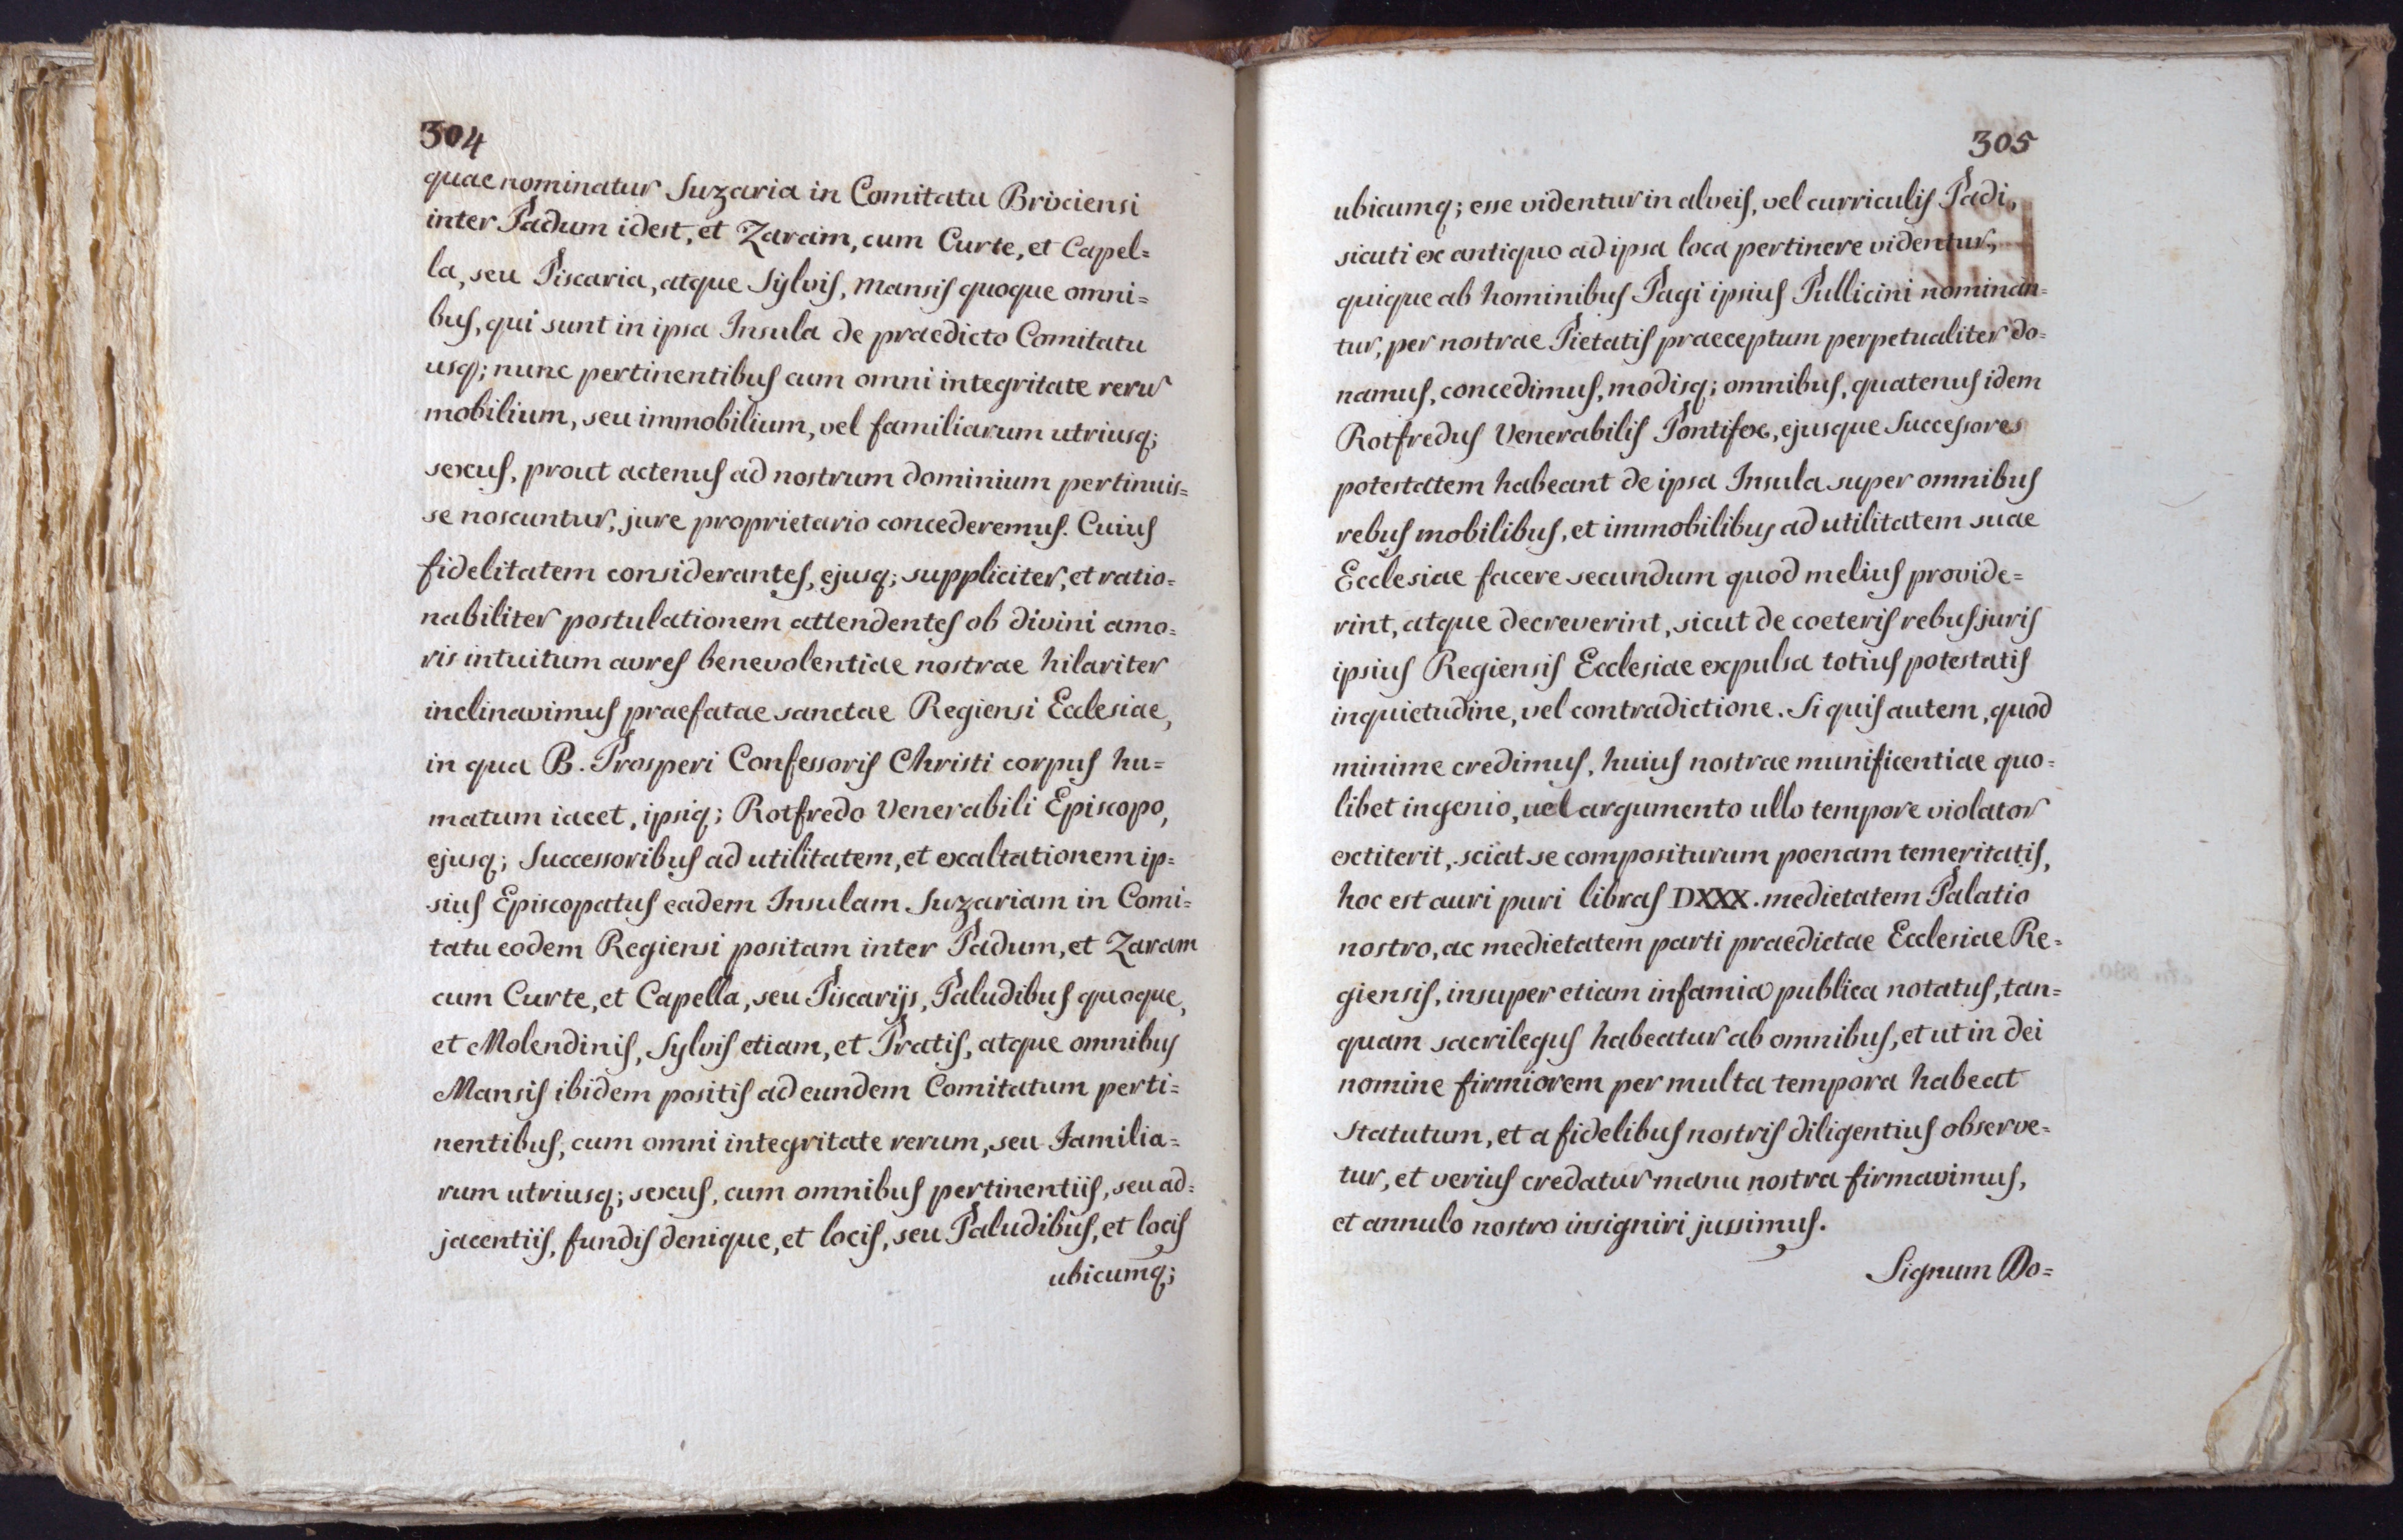 304
quae nominatur Suzaria in Comitatu Brixiensi
inter Padum idest, et Zaram, cum Curte, et Capel=
la, seu Piscaria, atque Sylvis, Mansis quoque omni=
bus, qui sunt in ipsa Insula de praedicto Comitatu
usq; nunc pertinentibus cum omni integritate reru
mobilium, seu immobilium, vel familiarum utriusq;
sexus, prout actenus ad nostrum dominium pertinuis=
se noscuntur, jure proprietario concederemus. Cuius
fidelitatem considerantes, ejusq; suppliciter, et ratio=
nabiliter postulationem attendentes ob divini amo=
ris intuitum aures benevolentiae nostrae hilariter
inclinavimus praefatae sanctae Regiensi Ecclesiae,
in qua B. Prosperi Confessoris Christi corpus hu=
matum iacet, ipsiq; Rotfredo Venerabili Episcopo,
ejusq; Successoribus ad utilitatem, et exaltationem ip=
sius Episcopatus eadem Insulam Suzariam in Comi=
tatu eodem Regiensi positam inter Padum, et Zaram
cum Curte, et Capella, seu Piscarijs, Paludibus quoque,
et Molendinis, Sylvis etiam, et Pratis, atque omnibus
Mansis ibidem positis ad eundem Comitatum perti=
nentibus, cum omni integritate rerum, seu Familia=
rum utriusq; sexus, cum omnibus pertinentiis, seu ad=
jacentiis, fundis denique, et locis, seu Paludibus, et locis
ubicumq;
305
ubicumq; esse videntur in alveis, vel curriculis Padi,
sicuti ex antiquo ad ipsa loca pertinere videntur,
quique ab hominibus Pagi ipsius Pullicini nominan=
tur, per nostrae Pietatis praeceptum perpetualiter do=
namus, concedimus, modisq; omnibus, quatenus idem
Rotfredus Venerabilis Pontifex, ejusque Successores
potestatem habeant de ipsa Insula super omnibus
rebus mobilibus, et immobilibus ad utilitatem suae
Ecclesiae facere secundum quod melius provide=
rint, atque decreverint, sicut de coeteris rebus juris
ipsius Regiensis Ecclesiae expulsa totius potestatis
inquietudine, vel contradictione. Si quis autem, quod
minime credimus, huius nostrae munificentiae quo=
libet ingenio, uel argumento ullo tempore violator
extiterit, sciat se compositurum poenam temeritatis,
hoc est auri puri libras DXXX. medietatem Palatio
nostro, ac medietatem parti praedictae Ecclesiae Re=
giensis, insuper etiam infamia publica notatus, tan=
quam sacrilegus habeatur ab omnibus, et ut in dei
nomine firmiorem per multa tempora habeat
statutum, et a fidelibus nostris diligentius observe=
tur, et verius credatur manu nostra firmavimus,
et annulo nostro insigniri jussimus.
Signum Do=